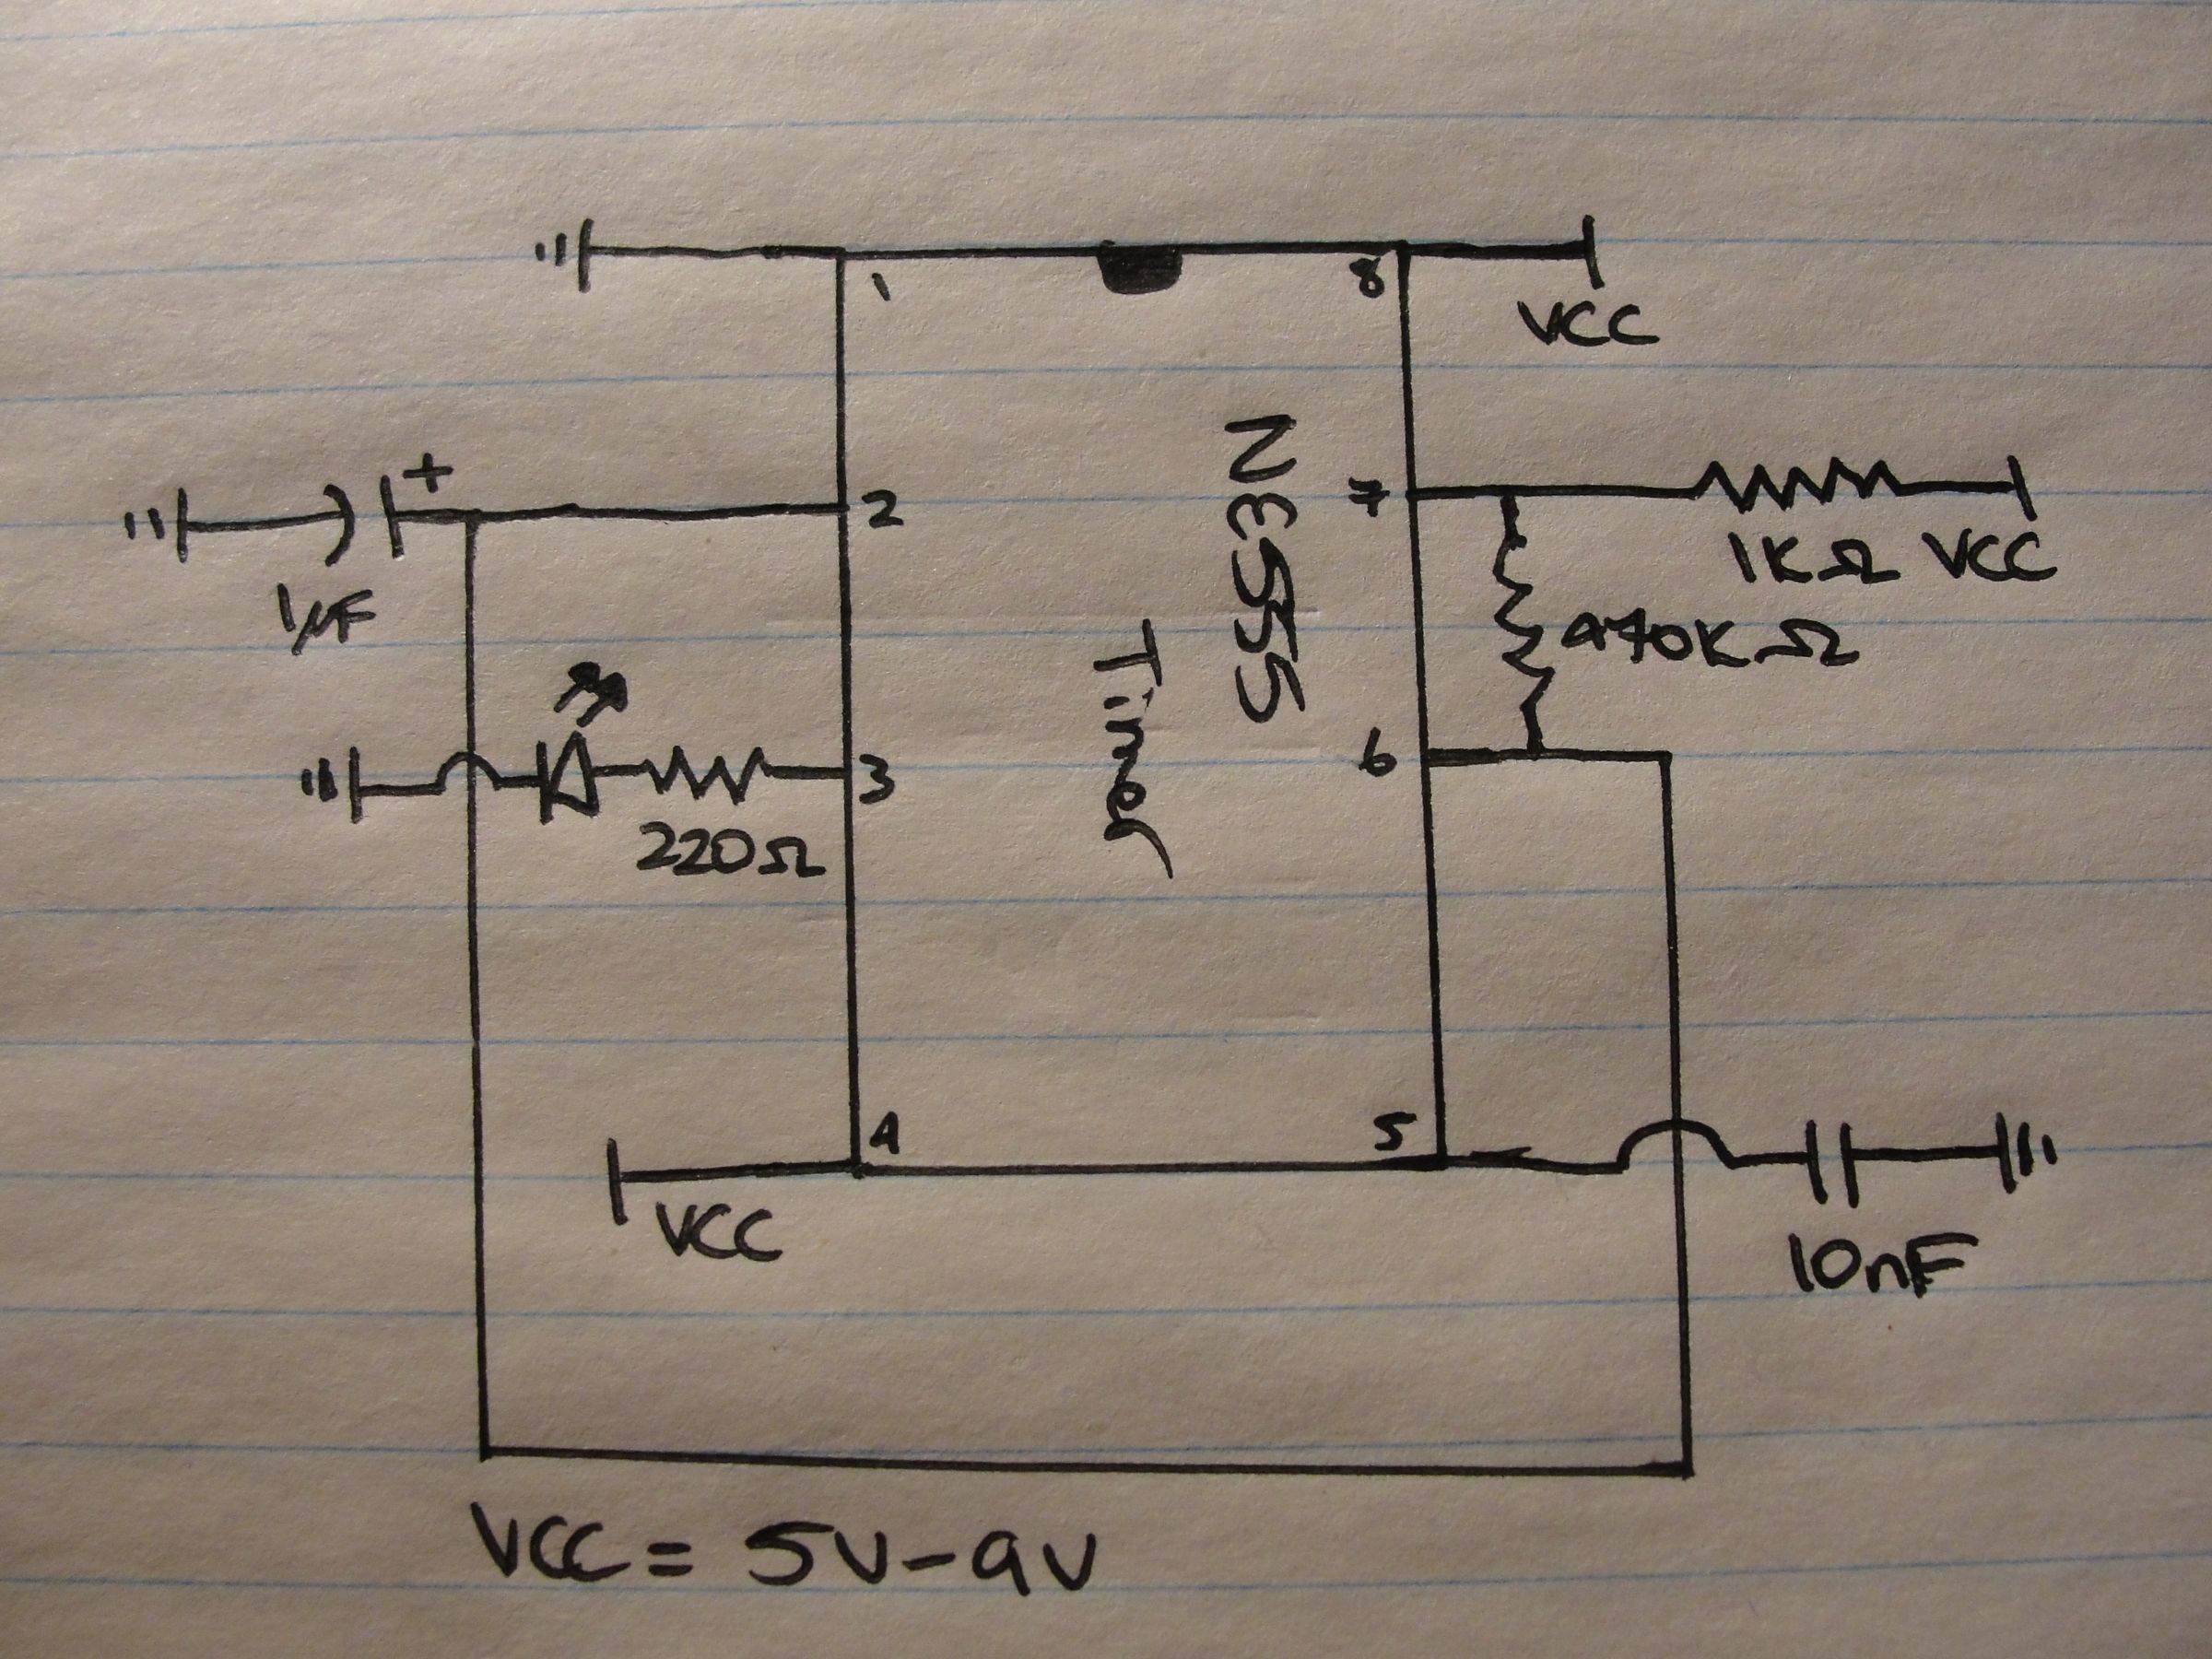 1
8
VCC
NE555
Timer
+
2
7
1µF
1KΩ VCC
470KΩ
3
6
220Ω
4
5
VCC
10nF
VCC = 5V-9V